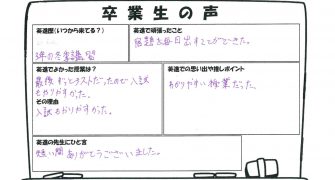 卒業生の声
英進歴(いつから来てる?)
3年の冬季講習
英進で頑張ったこと
宿題を毎日出すことができた。
英進でよかった授業は?
最後すごいテストだったので入試
もやりやすかった。
その理由
入試もやりやすかった。
英進での思い出や推しポイント
わかりやすい授業だった。
英進の先生にひと言
短い間ありがとうございました。